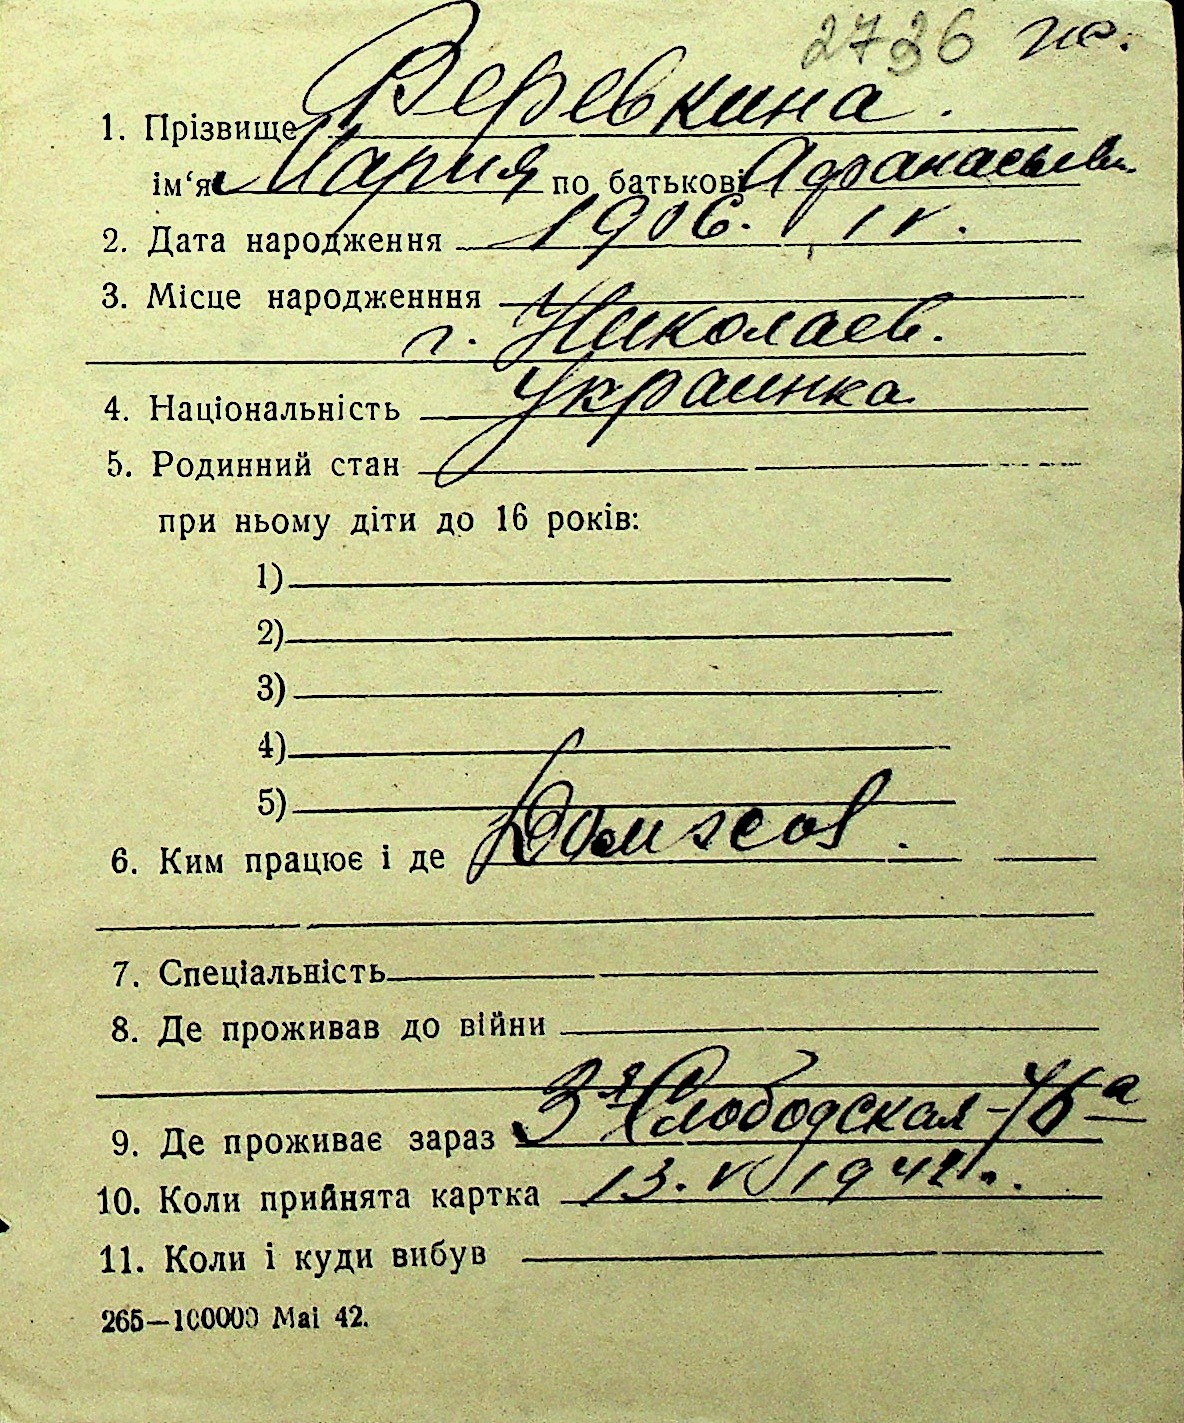 2736 ж.
1. Прізвище Веревкина.
ім‘я Мария по батькові Афанасьевн.
2. Дата народження 1906. IV.
3. Місце народженння
г. Николаев.
4. Національність Украинка
5. Родинний стан
при ньому діти до 16 років:
1)
2)
3)
4)
5)
6. Ким працює і де Домхоз.
7. Спеціальність
8. Де проживав до війни
9. Де проживає зараз 3я Слободская-76а
10. Коли прийнята картка 13. V 1942.
11. Коли і куди вибув
265—100000 Mai 42.